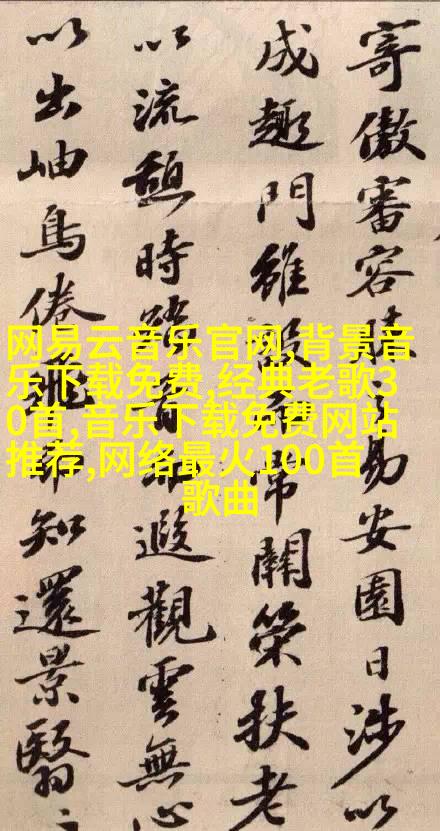 寄傲審容膝之易安園日涉以
成趣門雖設而常關策扶老
以流憩時矯首而遐觀雲無心
以出岫鳥倦飛而知還景翳〻
网易云音乐官网,背景音
乐下载免费,经典老歌3
0首,音乐下载免费网站
推荐,网络最火100首
歌曲